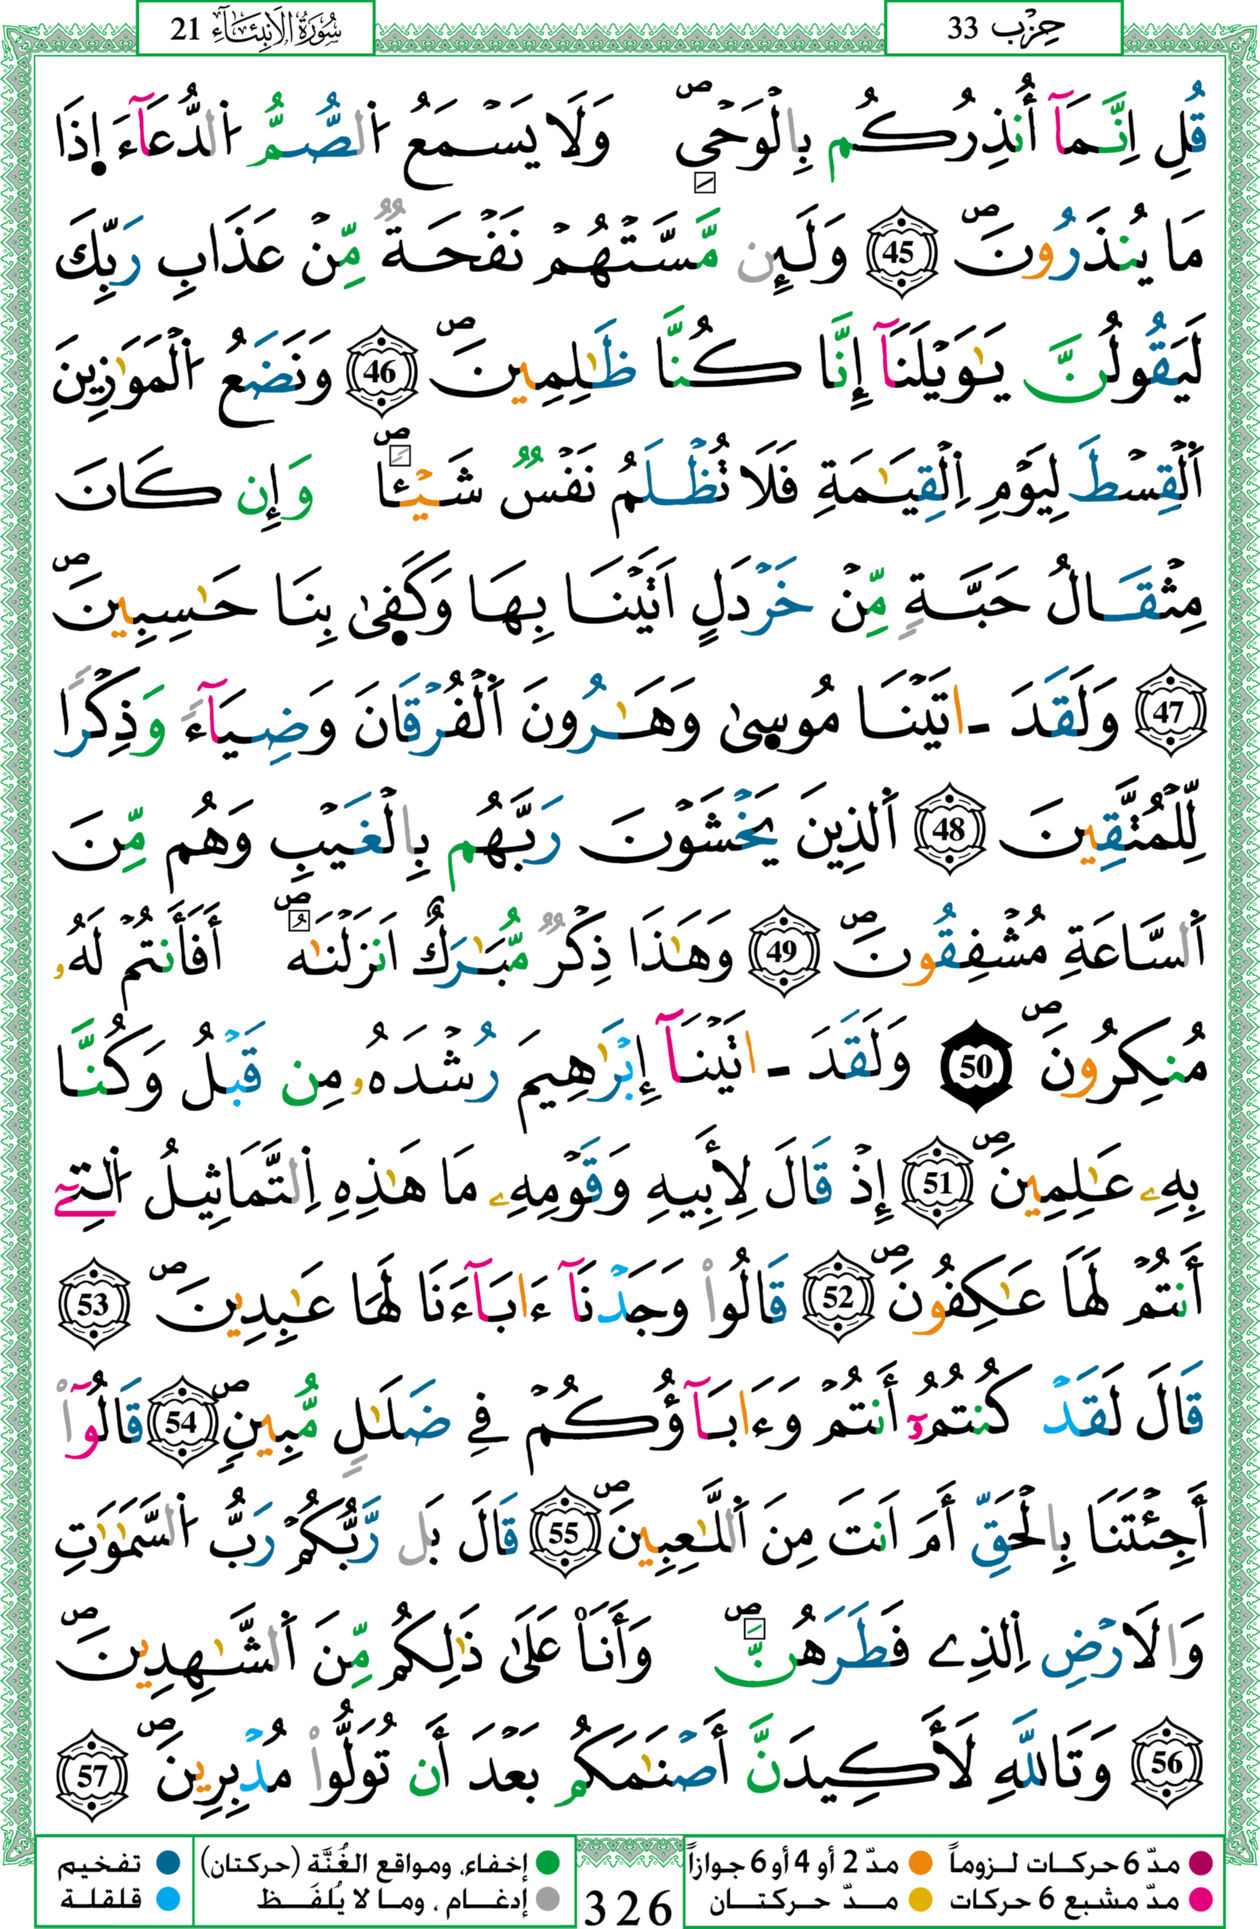 سُورَةُ الأَنبِئَاءِ 21
حِزْب 33
قُلِ اِنَّمَآ أُنذِرُكُم بِالْوَحْيِ ۖ وَلَا يَسْمَعُ اُ۬لصُّمُّ اُ۬لدُّعَآءَ اِ۪ذَا
مَا يُنذَرُونَ ۖ 45 وَلَئِن مَّسَّتْهُمْ نَفْحَةٌ مِّنْ عَذَابِ رَبِّكَ
لَيَقُولُنَّ يَٰوَيْلَنَآ إِنَّا كُنَّا ظَٰلِمِينَ ۖ 46 وَنَضَعُ اُ۬لْمَوَٰزِينَ
اَ۬لْقِسْطَ لِيَوْمِ اِ۬لْقِيَٰمَةِ فَلَا تُظْلَمُ نَفْسٌ شَيْـٔاً ۖ وَإِن كَانَ
مِثْقَالُ حَبَّةٍ مِّنْ خَرْدَلٍ اَتَيْنَا بِهَا وَكَف۪ىٰ بِنَا حَٰسِبِينَ ۖ
47 وَلَقَدَ ـ اتَيْنَا مُوس۪ىٰ وَهَٰرُونَ اَ۬لْفُرْقَانَ وَضِيَآءً وَذِكْراً
لِّلْمُتَّقِينَ 48 اَ۬لذِينَ يَخْشَوْنَ رَبَّهُم بِالْغَيْبِ وَهُم مِّنَ
اَ۬لسَّاعَةِ مُشْفِقُونَ ۖ 49 وَهَٰذَا ذِكْرٌ مُّبَٰرَكٌ اَنزَلْنَٰهُ ۖ أَفَأَنتُمْ لَهُۥ
مُنكِرُونَ ۖ 50 وَلَقَدَ ـ اتَيْنَآ إِبْرَٰهِيمَ رُشْدَهُۥ مِن قَبْلُ وَكُنَّا
بِهِۦ عَٰلِمِينَ ۖ 51 إِذْ قَالَ لِأَبِيهِ وَقَوْمِهِۦ مَا هَٰذِهِ اِ۬لتَّمَاثِيلُ اُ۬لتِےٓ
أَنتُمْ لَهَا عَٰكِفُونَ ۖ 52 قَالُواْ وَجَدْنَآ ءَابَآءَنَا لَهَا عَٰبِدِينَ ۖ 53
قَالَ لَقَدْ كُنتُمُۥٓ أَنتُمْ وَءَابَآؤُكُمْ فِے ضَلَٰلٍ مُّبِينٍ ۖ 54 قَالُوٓاْ
أَجِئْتَنَا بِالْحَقِّ أَمَ اَنتَ مِنَ اَ۬للَّٰعِبِينَ ۖ 55 قَالَ بَل رَّبُّكُمْ رَبُّ اُ۬لسَّمَٰوَٰتِ
وَالَارْضِ اِ۬لذِے فَطَرَهُنَّ ۖ وَأَنَا۠ عَلَىٰ ذَٰلِكُم مِّنَ اَ۬لشَّٰهِدِينَ ۖ
56 وَتَاللَّهِ لَأَكِيدَنَّ أَصْنَٰمَكُم بَعْدَ أَن تُوَلُّواْ مُدْبِرِينَ ۖ 57
مدّ 6 حركات لـزوماً
مدّ 2 أو 4 أو 6 جوازاً
إخفاء، ومواقع الغُنَّة (حركتان)
تفخيم
مدّ مشبع 6 حركات
مـدّ حـركتـان
إدغـام ، ومـا لا يُلفَـظ
قلقلة
326